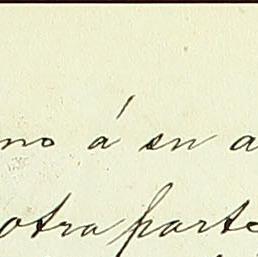 no á su a
otra parte